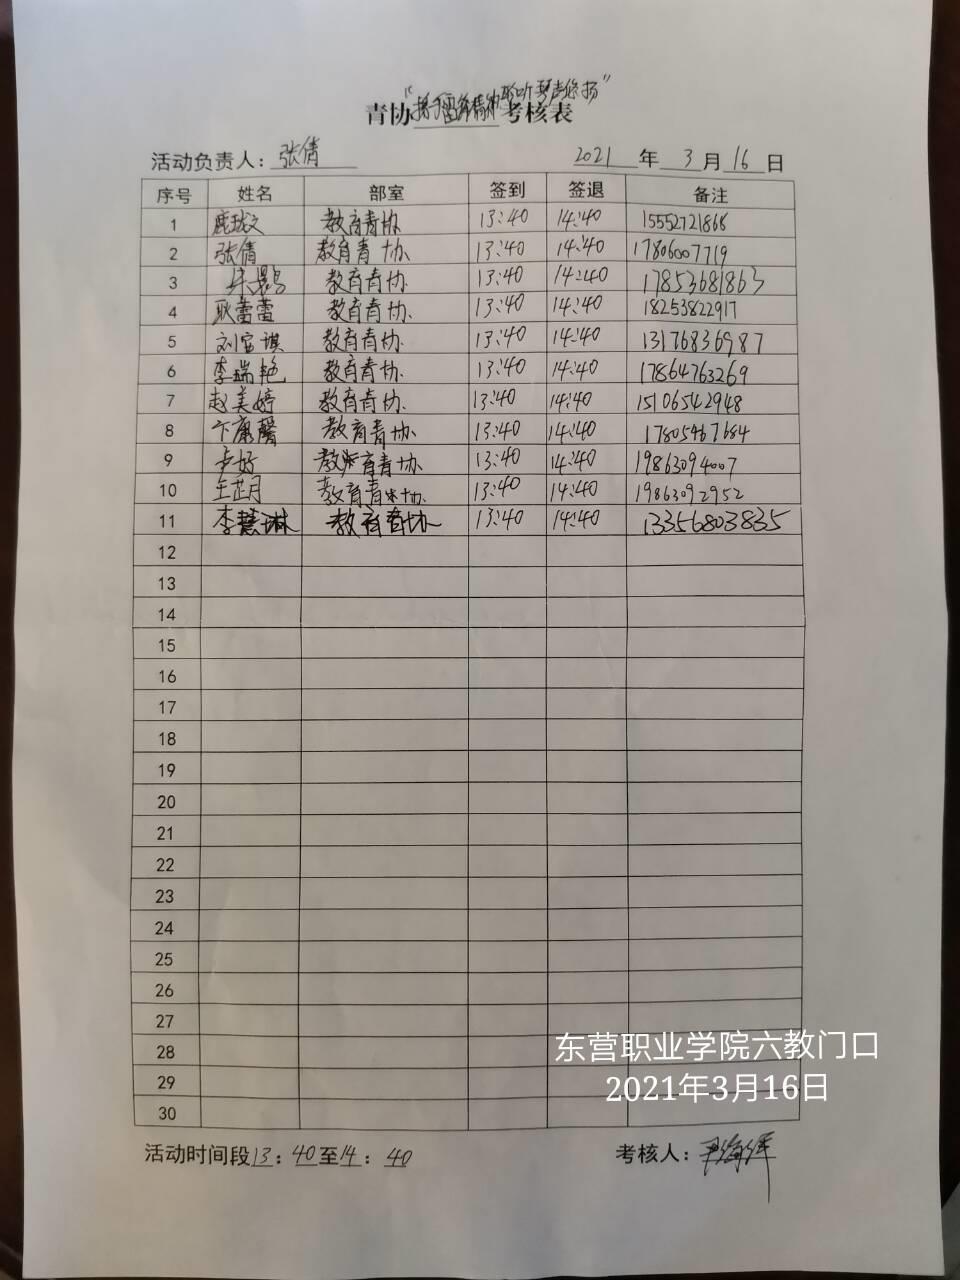 青协"扬雷锋精神 聆听琴声悠扬"考核表
活动负责人：张倩 2021年3月16日
序号 姓名 部室 签到 签退 备注
1 教育青协 13:40 14:40 15552721868
2 张倩 教育青协 13:40 14:40 17806007719
3 教育青协 13:40 14:40 17853681863
4 耿蕾蕾 教育青协 13:40 14:40 18253822917
5 刘富琪 教育青协 13:40 14:40 13176836987
6 李瑞艳 教育青协 13:40 14:40 17864763269
7 赵美婷 教育青协 13:40 14:40 15106542948
8 卞康馨 教育青协 13:40 14:40 17805467684
9 教育青协 13:40 14:40 19863094007
10 王芷月 教育青协 13:40 14:40 19863092952
11 李慧琳 教育青协 13:40 14:40 13356803835
12
13
14
15
16
17
18
19
20
21
22
23
24
25
26
27
28
29
30
东营职业学院六教门口
2021年3月16日
活动时间段13：40至14：40 考核人：